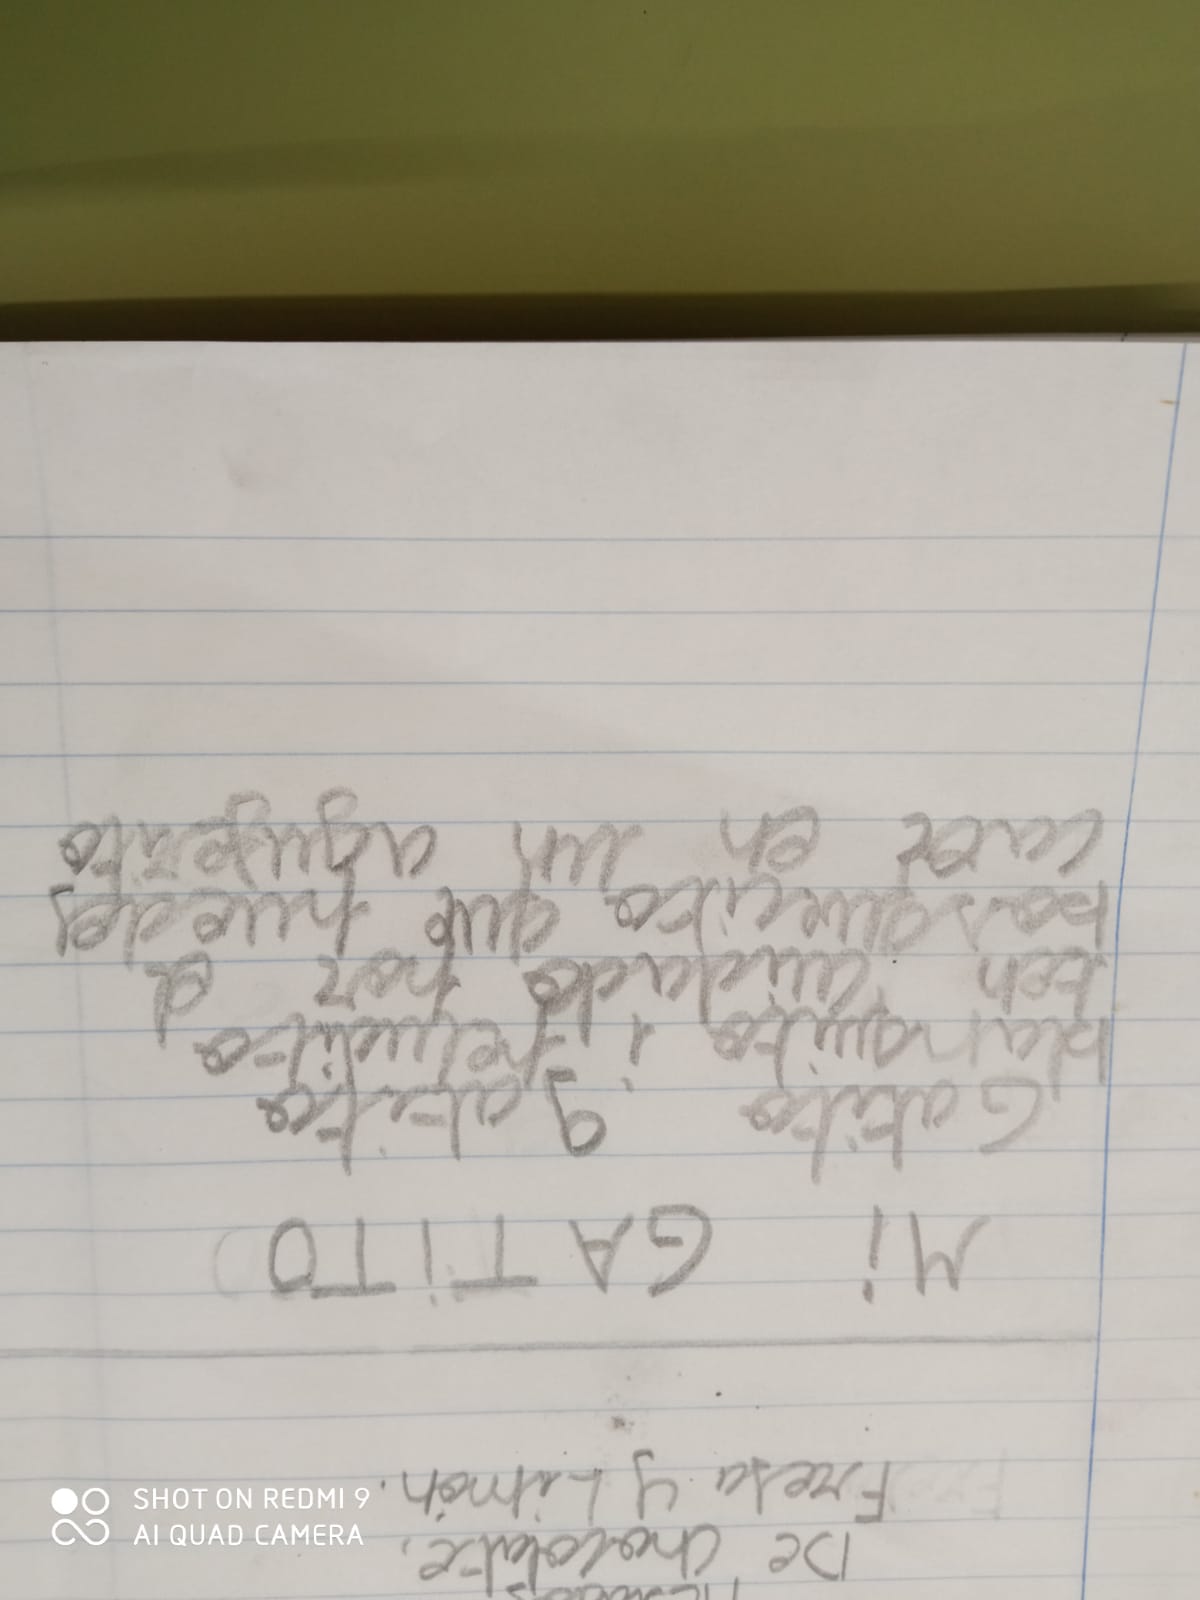 De chocolate,
Fresa y Limón.
Mi GATiTO
Gatito gatito
blanquito i peludito
ten cuidado por el
bosquecito que puedes
caer en un agujerito
SHOT ON REDMI 9
AI QUAD CAMERA